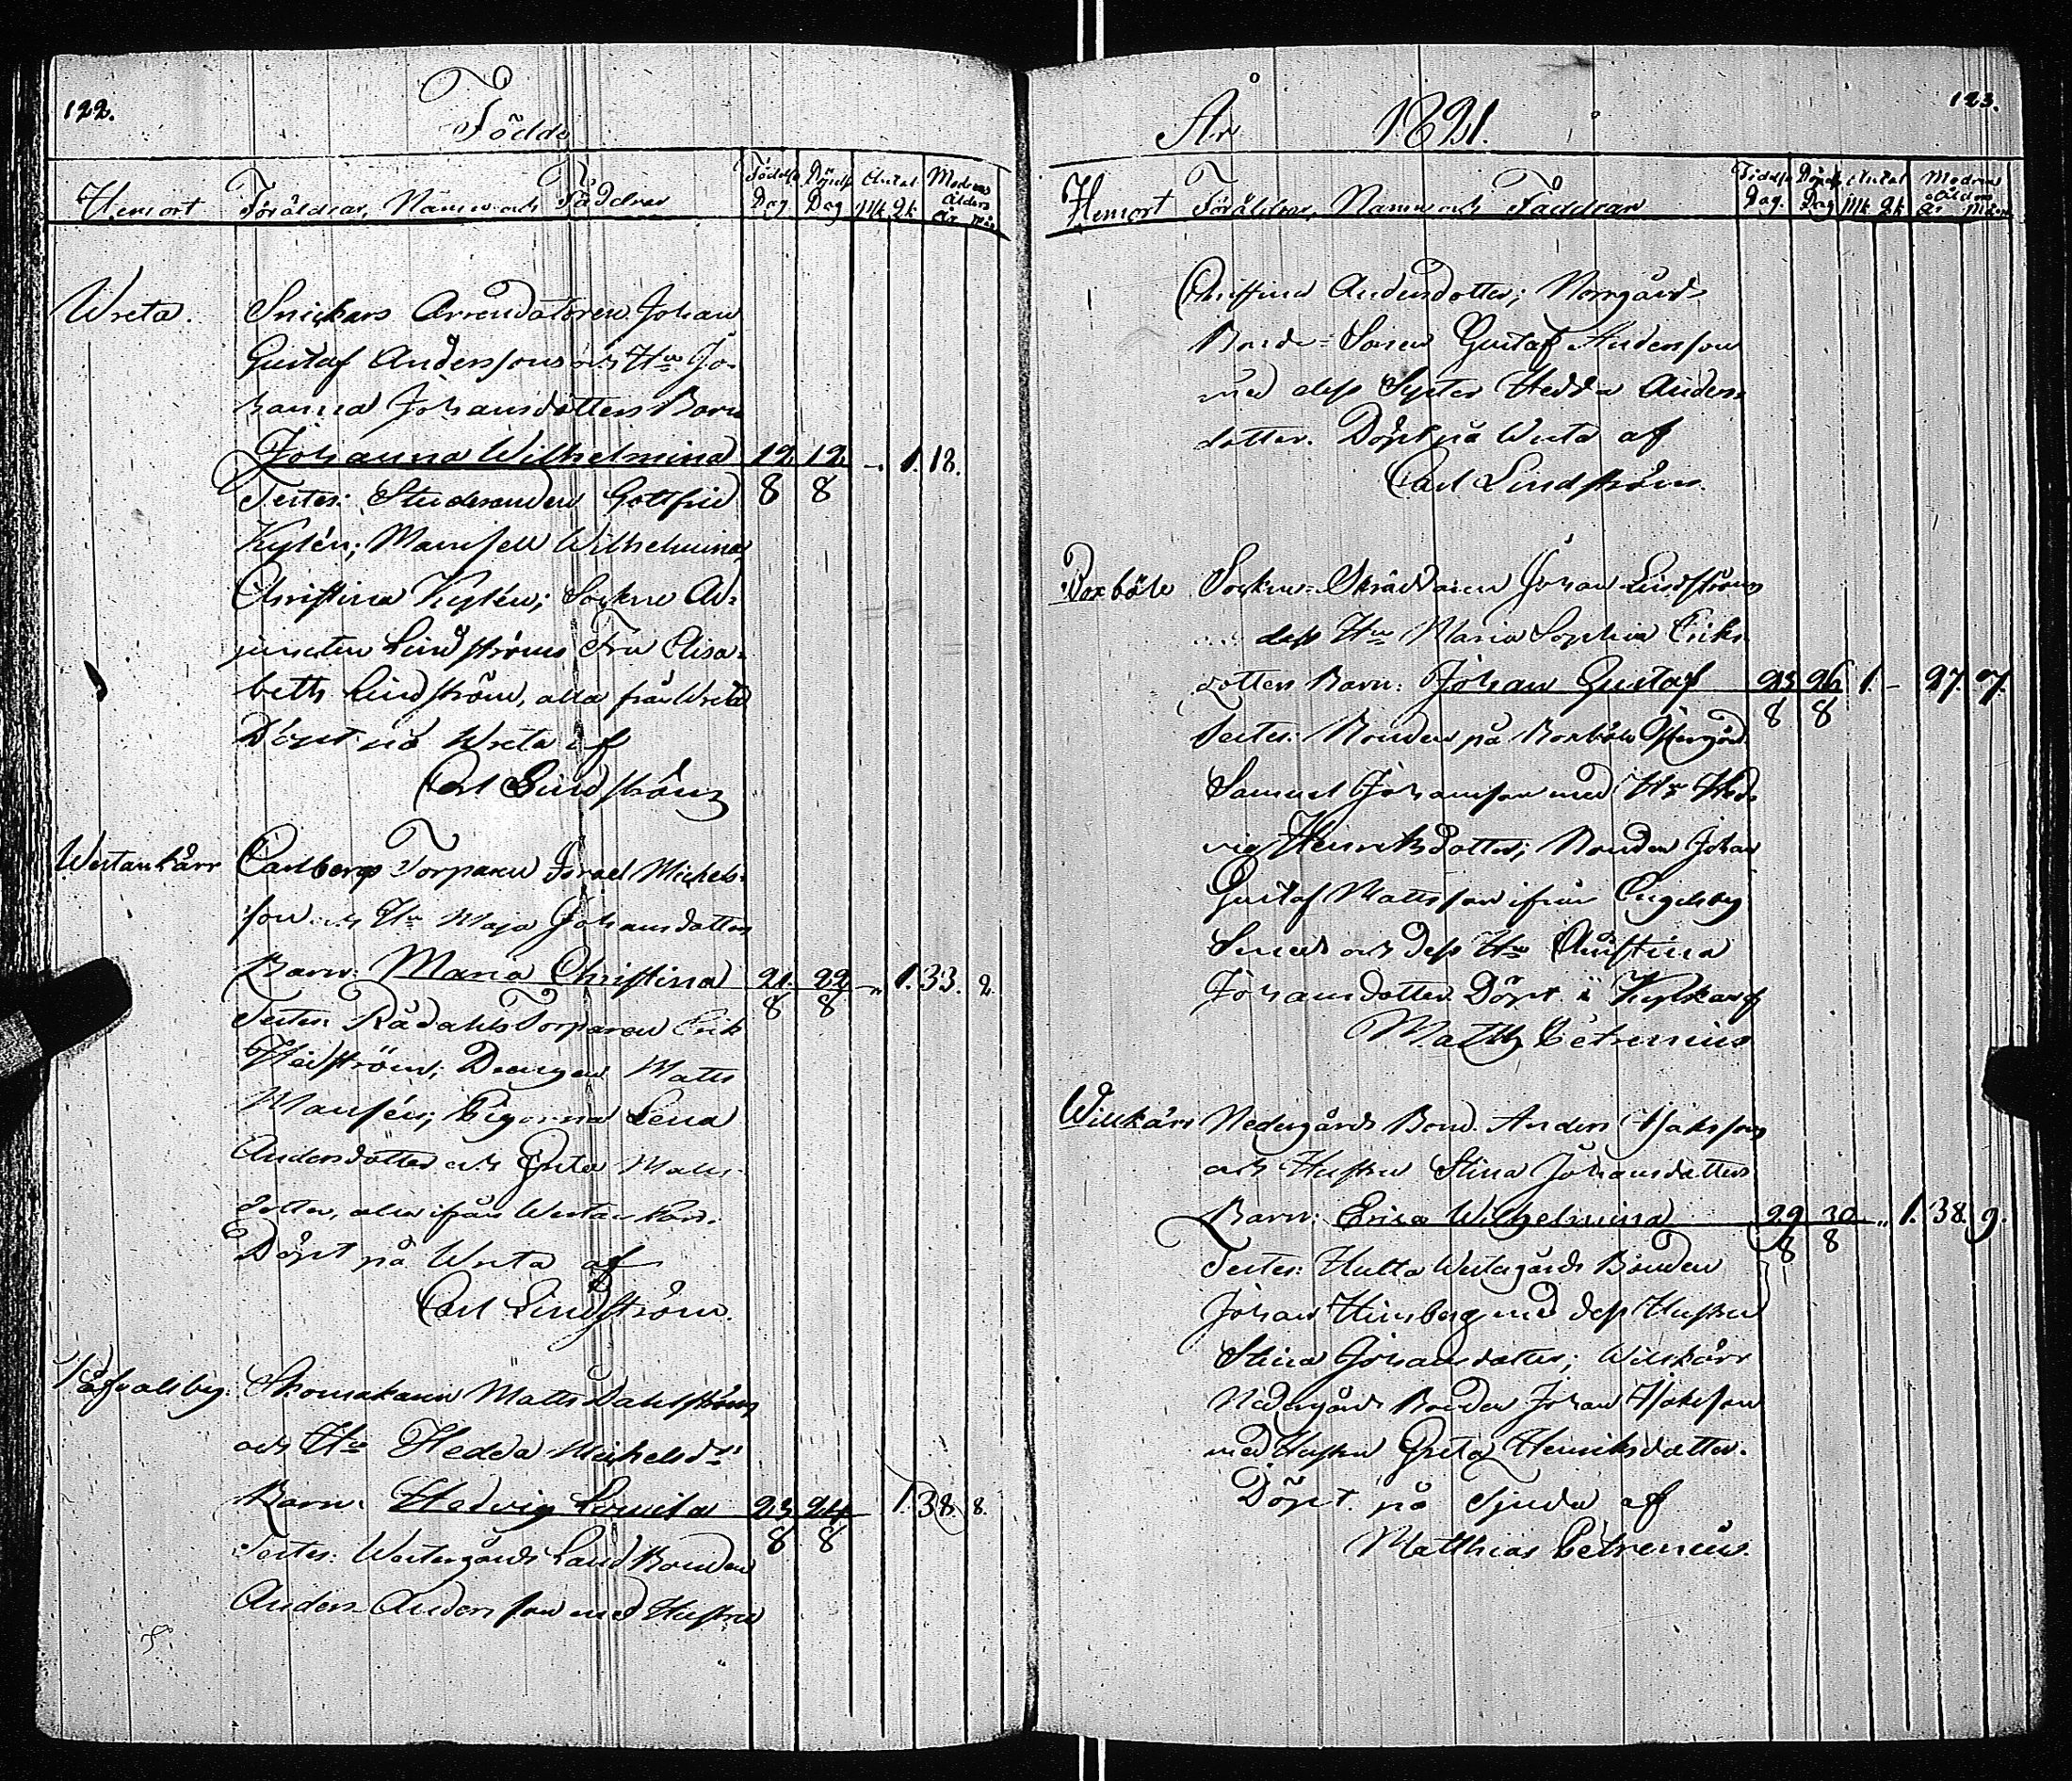 122.
Födde
Hemort Föräldrar, Namn och Faddrar Födelse Dag Döpelse Dag Antal Mk Qk Modrens Ålder År Mån
Wreta. Snickars Arrendatoren Johan
Gustaf Anderssons och Hu Jo-
hanna Johansdotters Barn
Johanna Wilhelmina 12 12 - 1. 18.
Testes: Studeranden Gottfrid 8 8
Kylén; Mamsell Wilhelmina
Christina Kylén; Sockne Ad-
juncten Lindströms Fru Elisa-
beth Lindström, alla från Wreta
Döpt på Wreta af
Carl Lindström
Westankärr Carlbergs Torparen Israel Michels-
son och Hu Maja Johansdotters
Barn: Maria Christina 21. 22 " 1. 33. 2.
Testes: Rådahls Torparen Erik 8 8
Hedström; Drengen Matts
Pigorna Lena
Andersdotter och Greta Matts-
dotter, alla ifrån Westankärr.
Döpt på Wreta af
Carl Lindström.
Påfvalsby. Skomakaren Matts Dahlströms
och Hu Hedda Michelsdr
Barn: Hedvig Lovisa 23 24 1. 38. 8.
Testes: Westergårds Land Bonden 8 8
Anders Andersson med Hustru
123.
År 1821.
Hemort Föräldrar, Namn och Faddrar Födelse Dag. Döpelse Dag Antal Mk Qk Modrens Ålder År Mån
Christina Andersdotter; Norrgårds
Bonde-Sonen Gustaf Andersson
med dess Syster Hedda Anders-
dotter. Döpt på Wreta af
Carl Lindström.
Boxböle Sockne-Skräddaren Johan Lindströms
dess Hu Maria Sophia Eriks-
dotters Barn: Johan Gustaf 23 26 1. - 27. 7.
Testes: Bonden på Boxböle Östergård 8 8
Samuel Johansson med Hu Hed-
vig Henriksdotter; Bonden Johan
Gustaf Mattsson ifrån Engelsby
och dess Hu Christina
Johansdotter. Döpt i Kyrkan af
Matth Petrenius
Willkärr Nedergårds Bond. Anders Isakssons
och Hustru Stina Johansdotters
Barn: Erica Wilhelmina 29 30 " 1. 38. 9.
Testes: Hulta Westergårds Bonden 8 8
Johan Himberg med dess Hustru
Stina Johansdotter; Willkärr
Nedergårds Bonden Johan Isaksson
med Hustru Greta Henriksdotter.
Döpt på Tjuda af
Matthias Petrenius.